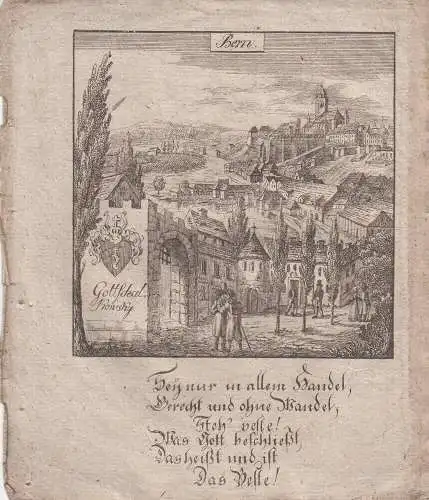 Bern.
Seÿ nur in allem Handel,
Gerecht und ohne Wandel,
Steh' veste!
Was Gott beschließt,
Das heißt und ist
Das Beste!